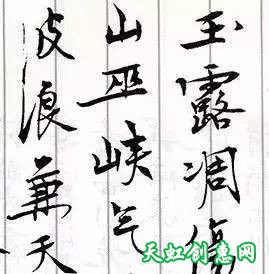 玉露凋傷
山巫峡气
波浪兼天
天虹创意网